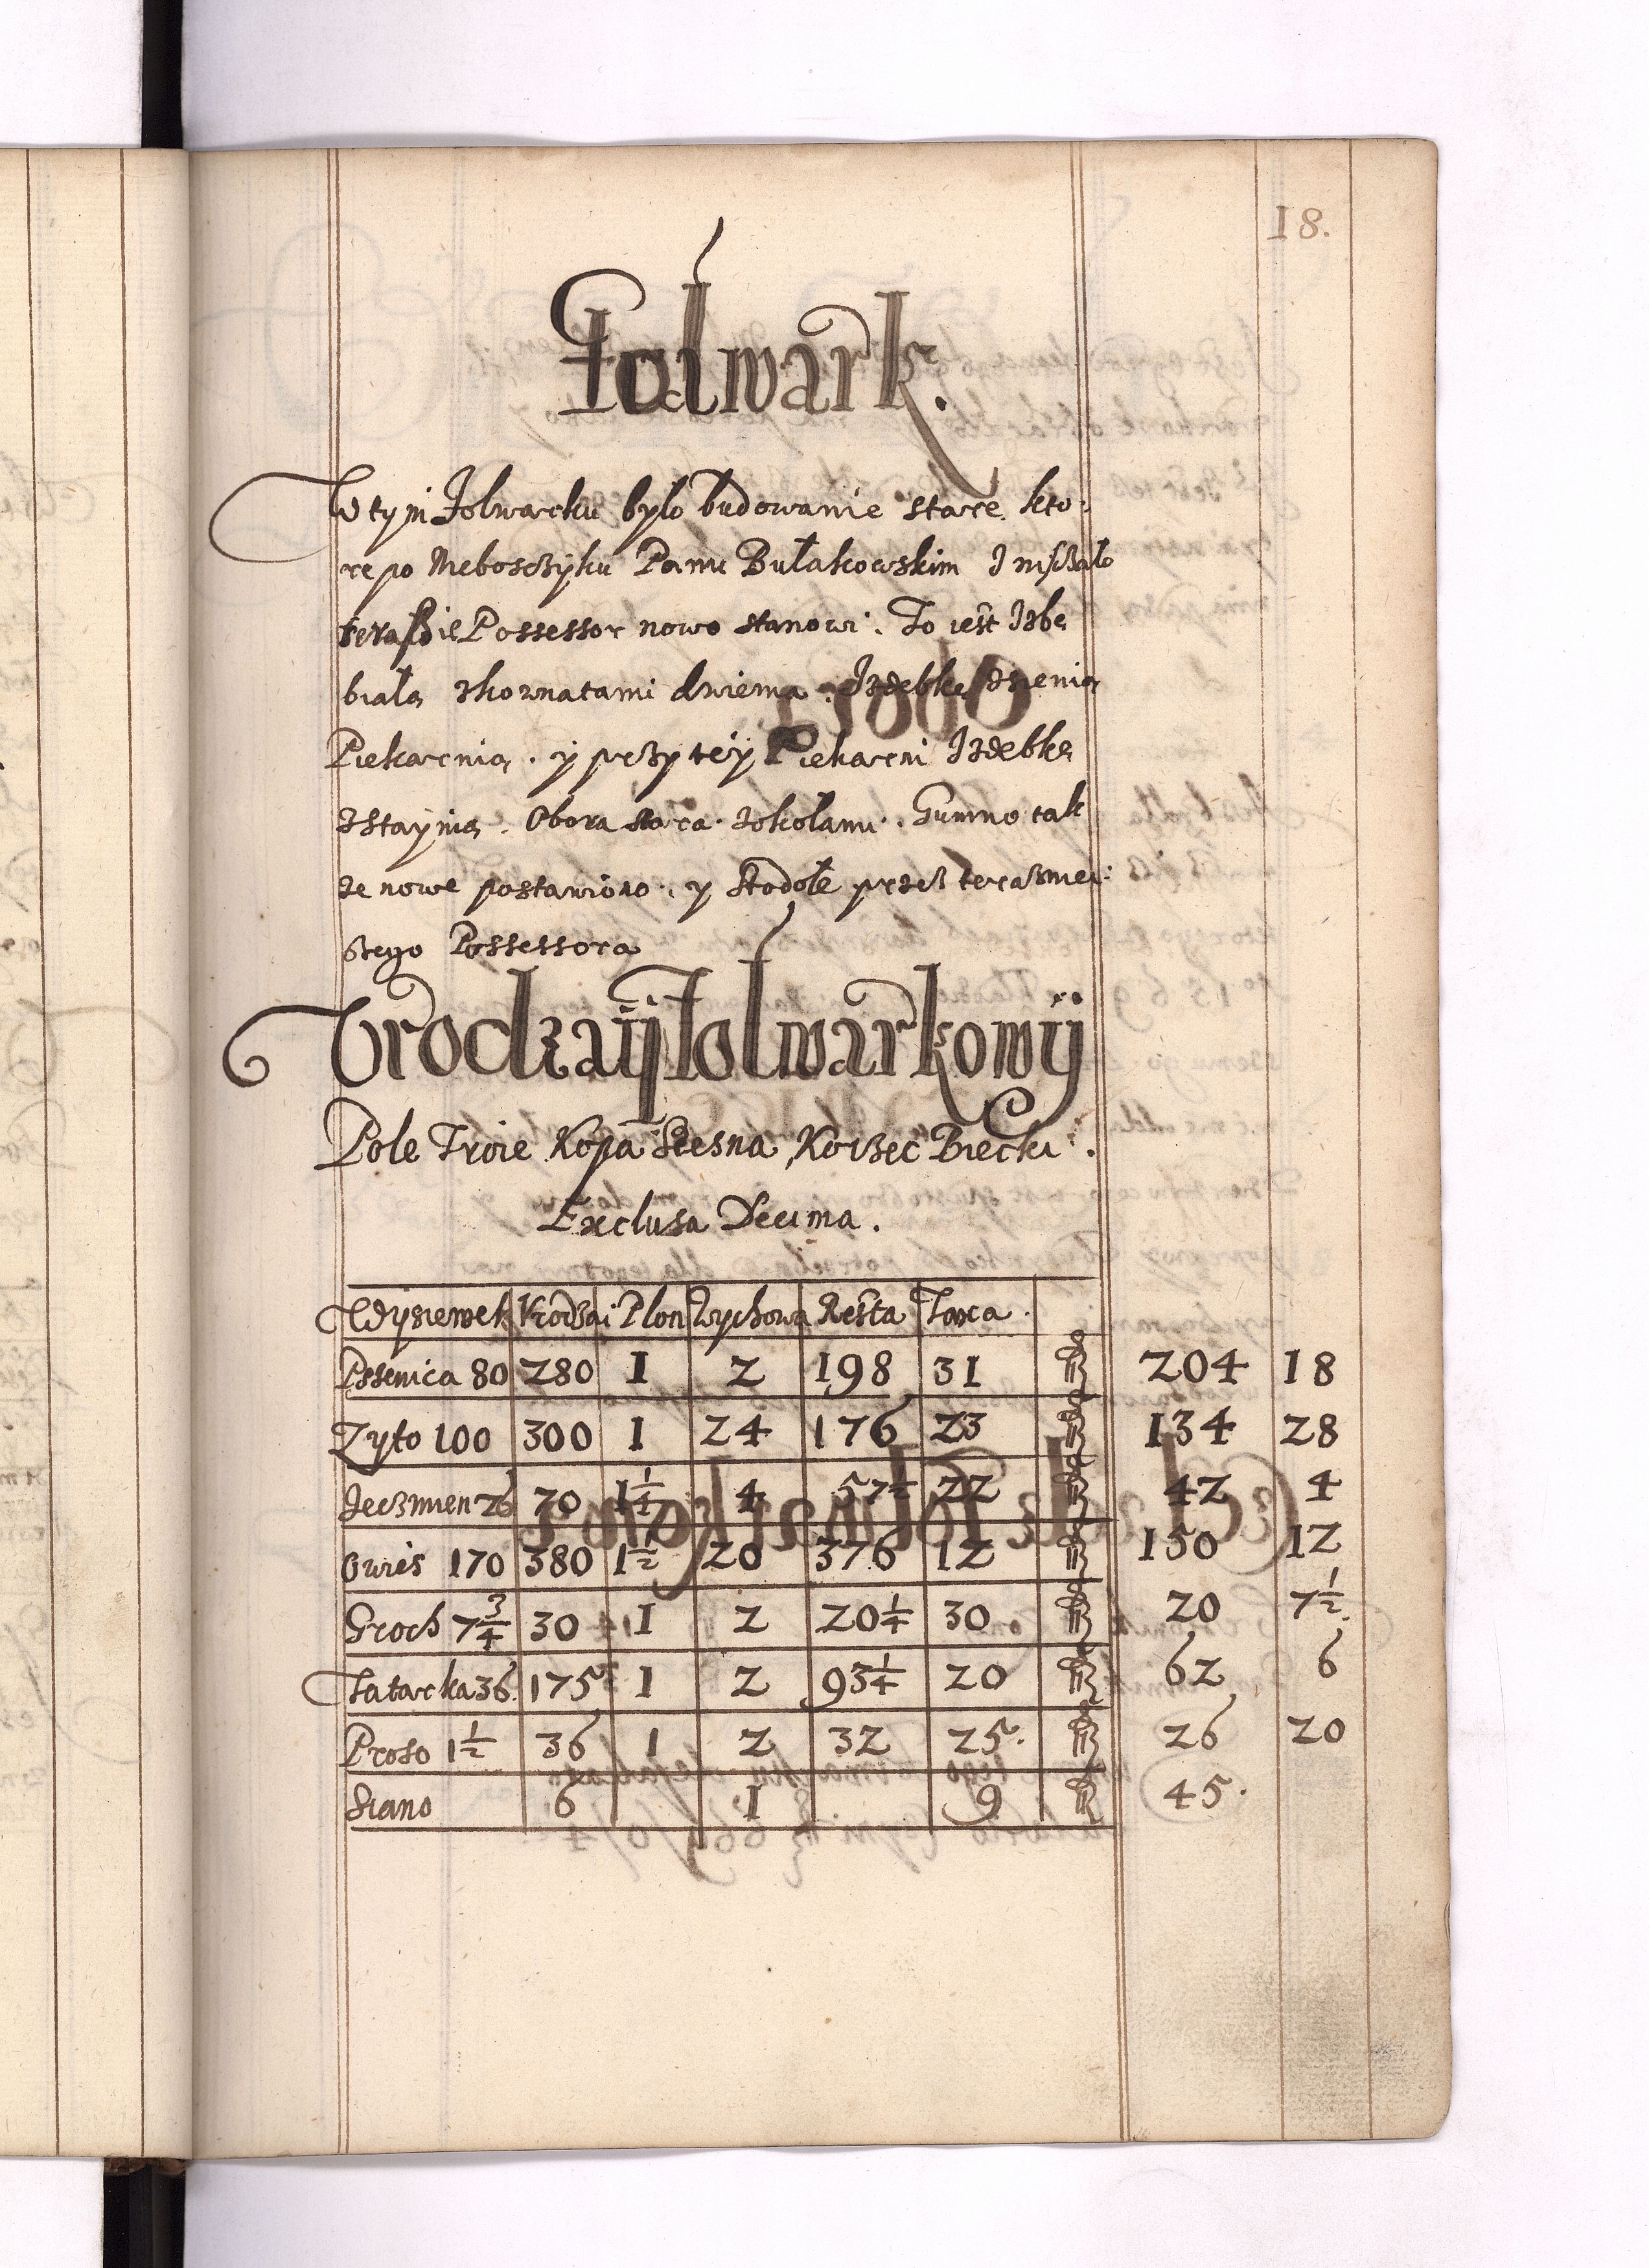 18.
Folwark.
W tym Folwarku bylo budowanie stare kto-
re po Nieboszczyku Panu Bułakowskim
Possessor nowo stanowi. To iest Izbę
białą z komnatami dwiema. Izdebkę z sienią
Piekarnią. y przy tey Piekarni Izdebkę
Staynią. Obora stara zokołami. Gumno tak
ze nowe postawiono, y Stodołe przez terazniei:
szego Possessora
Vrodzaij Folwarkowij
Pole Troie Kopa Szesna Korzec Biecki.
Exclusa Decima.
Wysiewek Vrodzai Plon Wychowa Resta Taxa.
Pssenica 80 280 1 2 198 31 204 18
Zyto 100 300 1 24 176 23 134 28
Jeczmien 26 70 1 1/4 4 57 1/2 22 42 4
Owies 170 380 1 1/2 20 376 12 150 12
Groch 7 3/4 30 1 2 20 1/4 30. 20 7 1/2.
Tatarka 36. 175 1 2 93 1/4 20 62 6
Proso 1 1/2 36 1 2 32 25. 26 20
Siano 6 1 9 45.